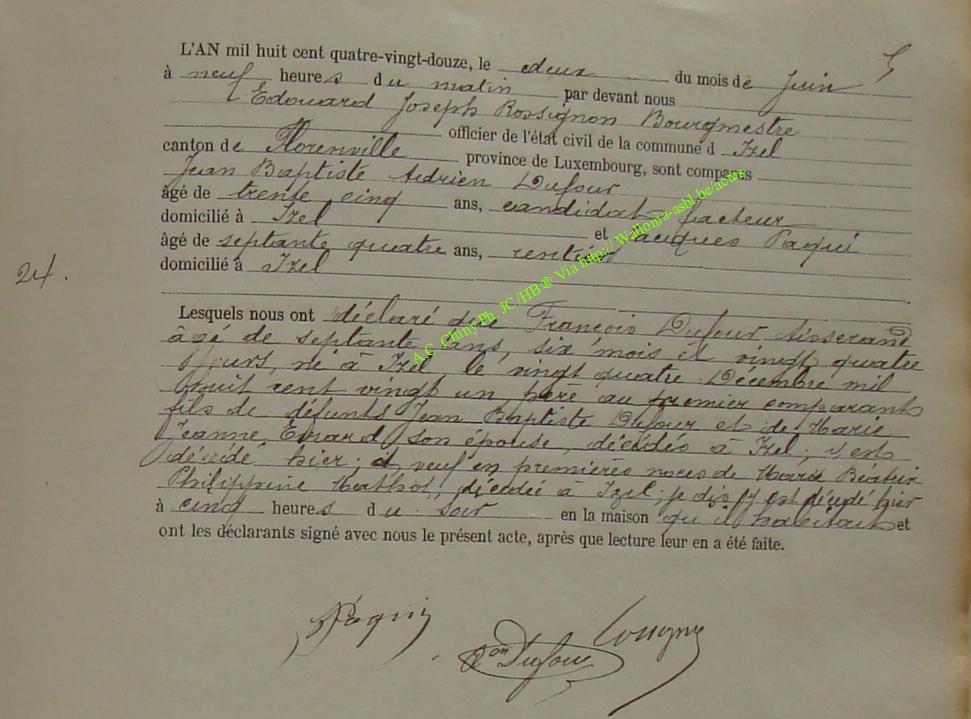 L'AN mil huit cent quatre-vingt-douze, le deux du mois de Juin 5
à neuf heures du matin par devant nous
Edouard Joseph Rossignon Bourgmestre
officier de l'état civil de la commune d Izel
canton de Florenville province de Luxembourg, sont comparus
Jean Baptiste Adrien Dufour
âgé de trente cinq ans, candidat facteur
domicilié à Izel et Jacques Paqui
âgé de septante quatre ans, rentier
domicilié à Izel
24.
A.C. Chiny Ph. JC/HB @ Via http://Wallonia-asbl.be/actes
Lesquels nous ont déclaré que François Dufour tisserand
âgé de septante ans, six mois et vingt quatre
jours, né à Izel, le vingt quatre Décembre mil
huit cent vingt un, père au premier comparant
fils de défunts Jean Baptiste Dufour et de Marie
Jeanne, son épouse, décédés à Izel; y est
décédé hier; et veuf en premières noces de Marie
Philippine Mathot, décédée à Izel; je dis y est décédé hier
à cinq heures du soir en la maison qu'il habitait et
ont les déclarants signé avec nous le présent acte, après que lecture leur en a été faite.
Paqui
Dufour